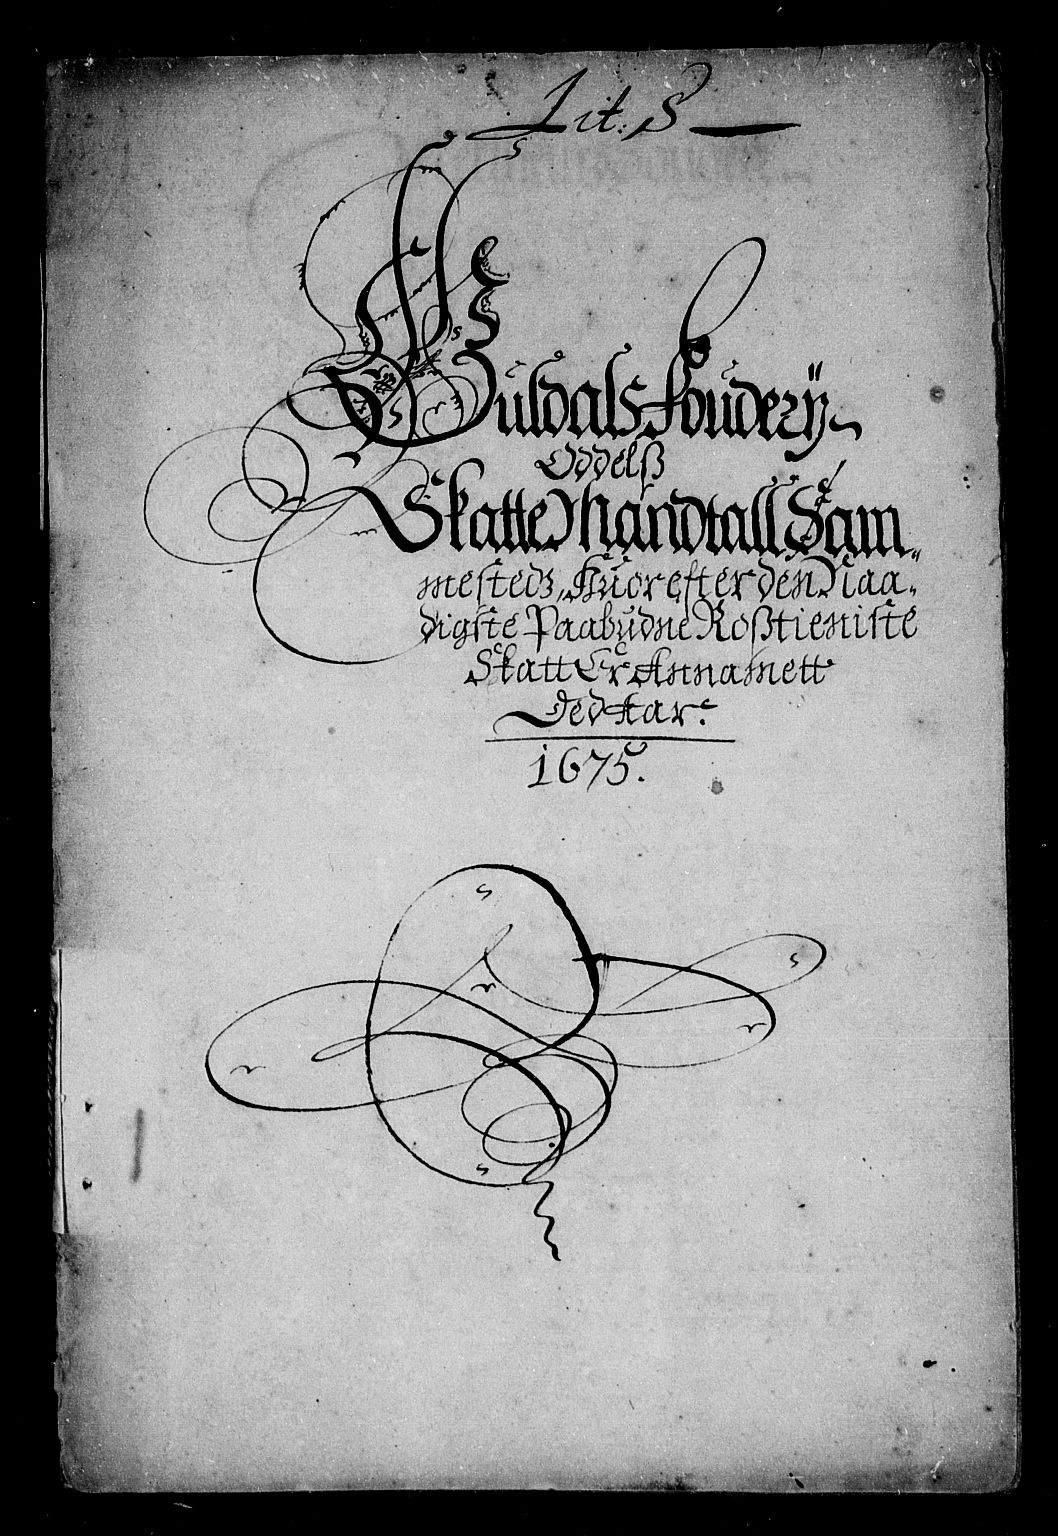 Lit: S
Guldals foudery
Oddelß
Skatte Mandtall Sam-
mesteds, Huorefter den Naa-
digste Paabudne Roßtieniste
Skatt Er Annamett
Ded Aar.
1675.